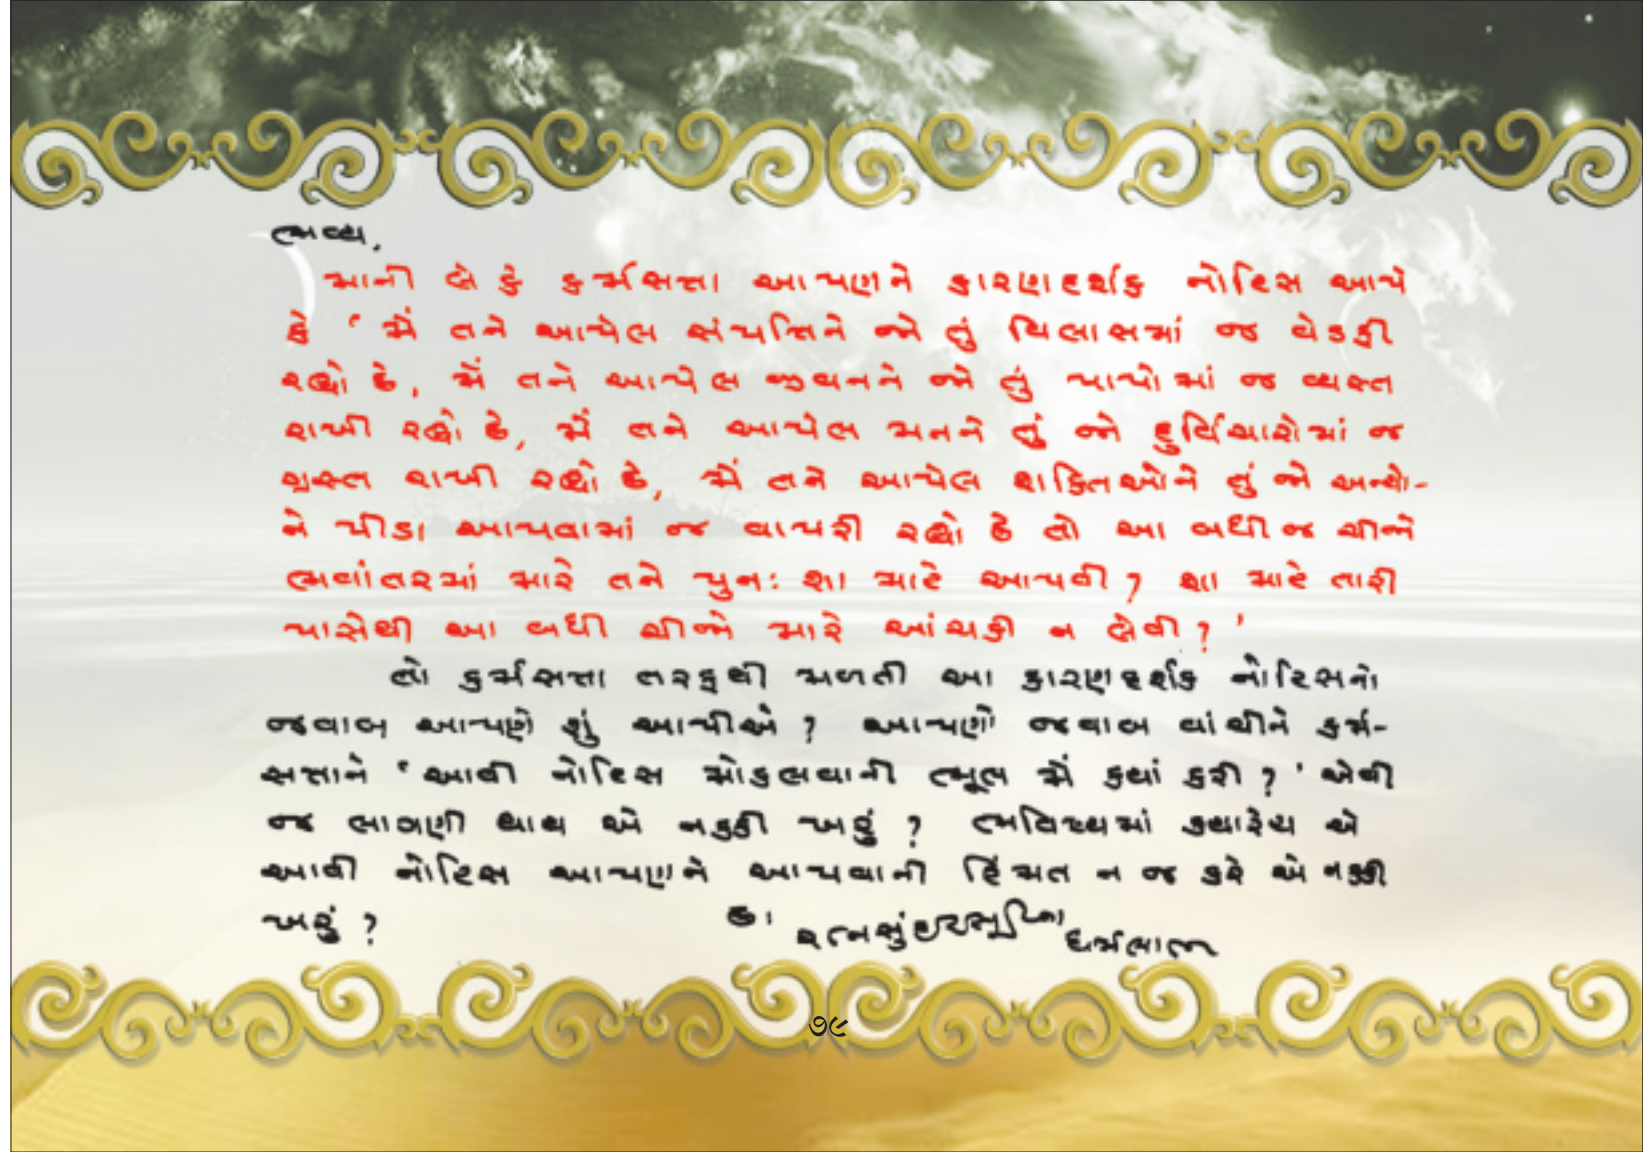 ભવ્ય,
માની લે કે કર્મસત્તા આપણને કારણદર્શક નોટિસ આપે
કે 'મેં તને આપેલ સંપત્તિને જો તું વિલાસમાં જ વેડફી
રહ્યો છે, મેં તને આપેલ જીવનને જો તું પાપોમાં જ વ્યસ્ત
રાખી રહ્યો છે, મેં તને આપેલ મનને તું જો દુર્વિચારોમાં જ
ગ્રસ્ત રાખી રહ્યો છે, મેં તને આપેલ શક્તિઓને તું જો અન્યો-
ને પીડા આપવામાં જ વાપરી રહ્યો છે તો આ બધી જ ચીજો
ભવાંતરમાં મારે તને પુનઃ શા માટે આપવી? શા માટે તારી
પાસેથી આ બધી ચીજો મારે આંચકી ન લેવી?'
તો કર્મસત્તા તરફથી મળતી આ કારણદર્શક નોટિસનો
જવાબ આપણે શું આપીએ? આપણો જવાબ વાંચીને કર્મ-
સત્તાને 'આવી નોટિસ મોકલવાની ભૂલ મેં ક્યાં કરી?' એવી
જ લાગણી થાય એ નક્કી ખરું? ભવિષ્યમાં ક્યારેય એ
આવી નોટિસ આપણને આપવાની હિંમત ન જ કરે એ નક્કી
ખરું?
દ. રત્નસુંદરસૂરિના ધર્મલાભ
૭૯